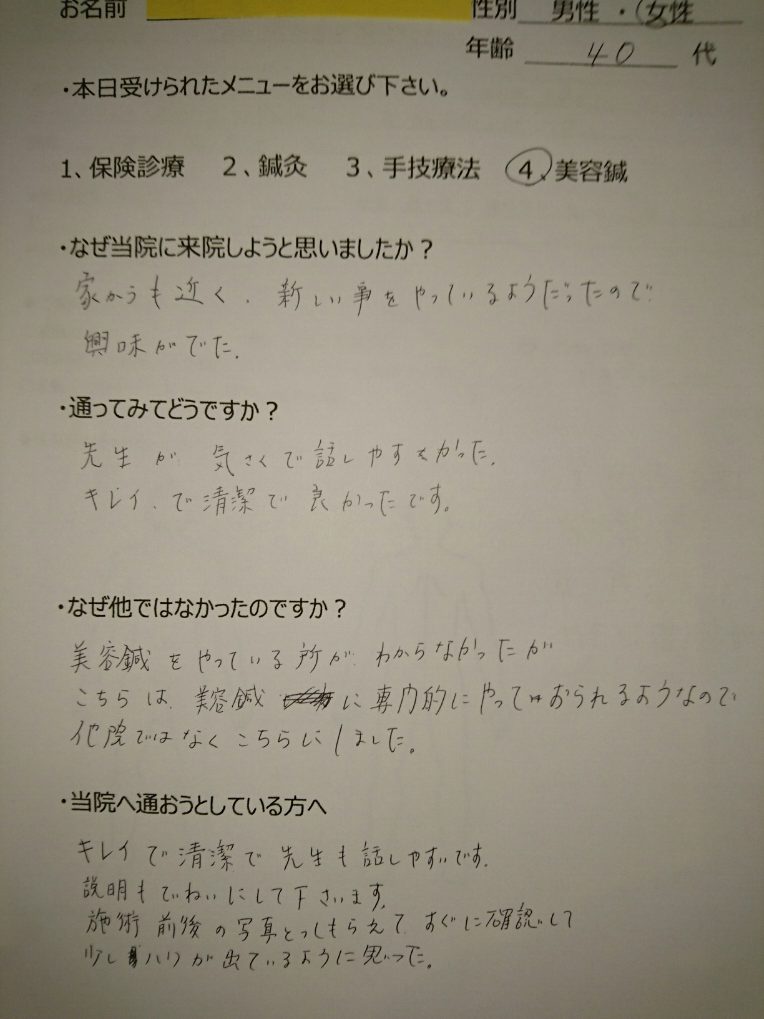 お名前
性別 男性 ・ 女性
年齢 40 代
・本日受けられたメニューをお選び下さい。
1、保険診療 2、鍼灸 3、手技療法 4、美容鍼
・なぜ当院に来院しようと思いましたか?
家からも近く、新しい事をやっているようだったので
興味がでた。
・通ってみてどうですか?
先生が 気さくで話しやすかった。
キレイ、で清潔で良かったです。
・なぜ他ではなかったのですか?
美容鍼をやっている所が わからなかったが
こちらは、美容鍼 に専門的にやっておられるようなので
他院ではなくこちらにしました。
・当院へ通おうとしている方へ
キレイで清潔で先生も話しやすいです。
説明もていねいにして下さいます。
施術前後の写真とってもらえて、すぐに確認して
少しハリが出ているように思った。